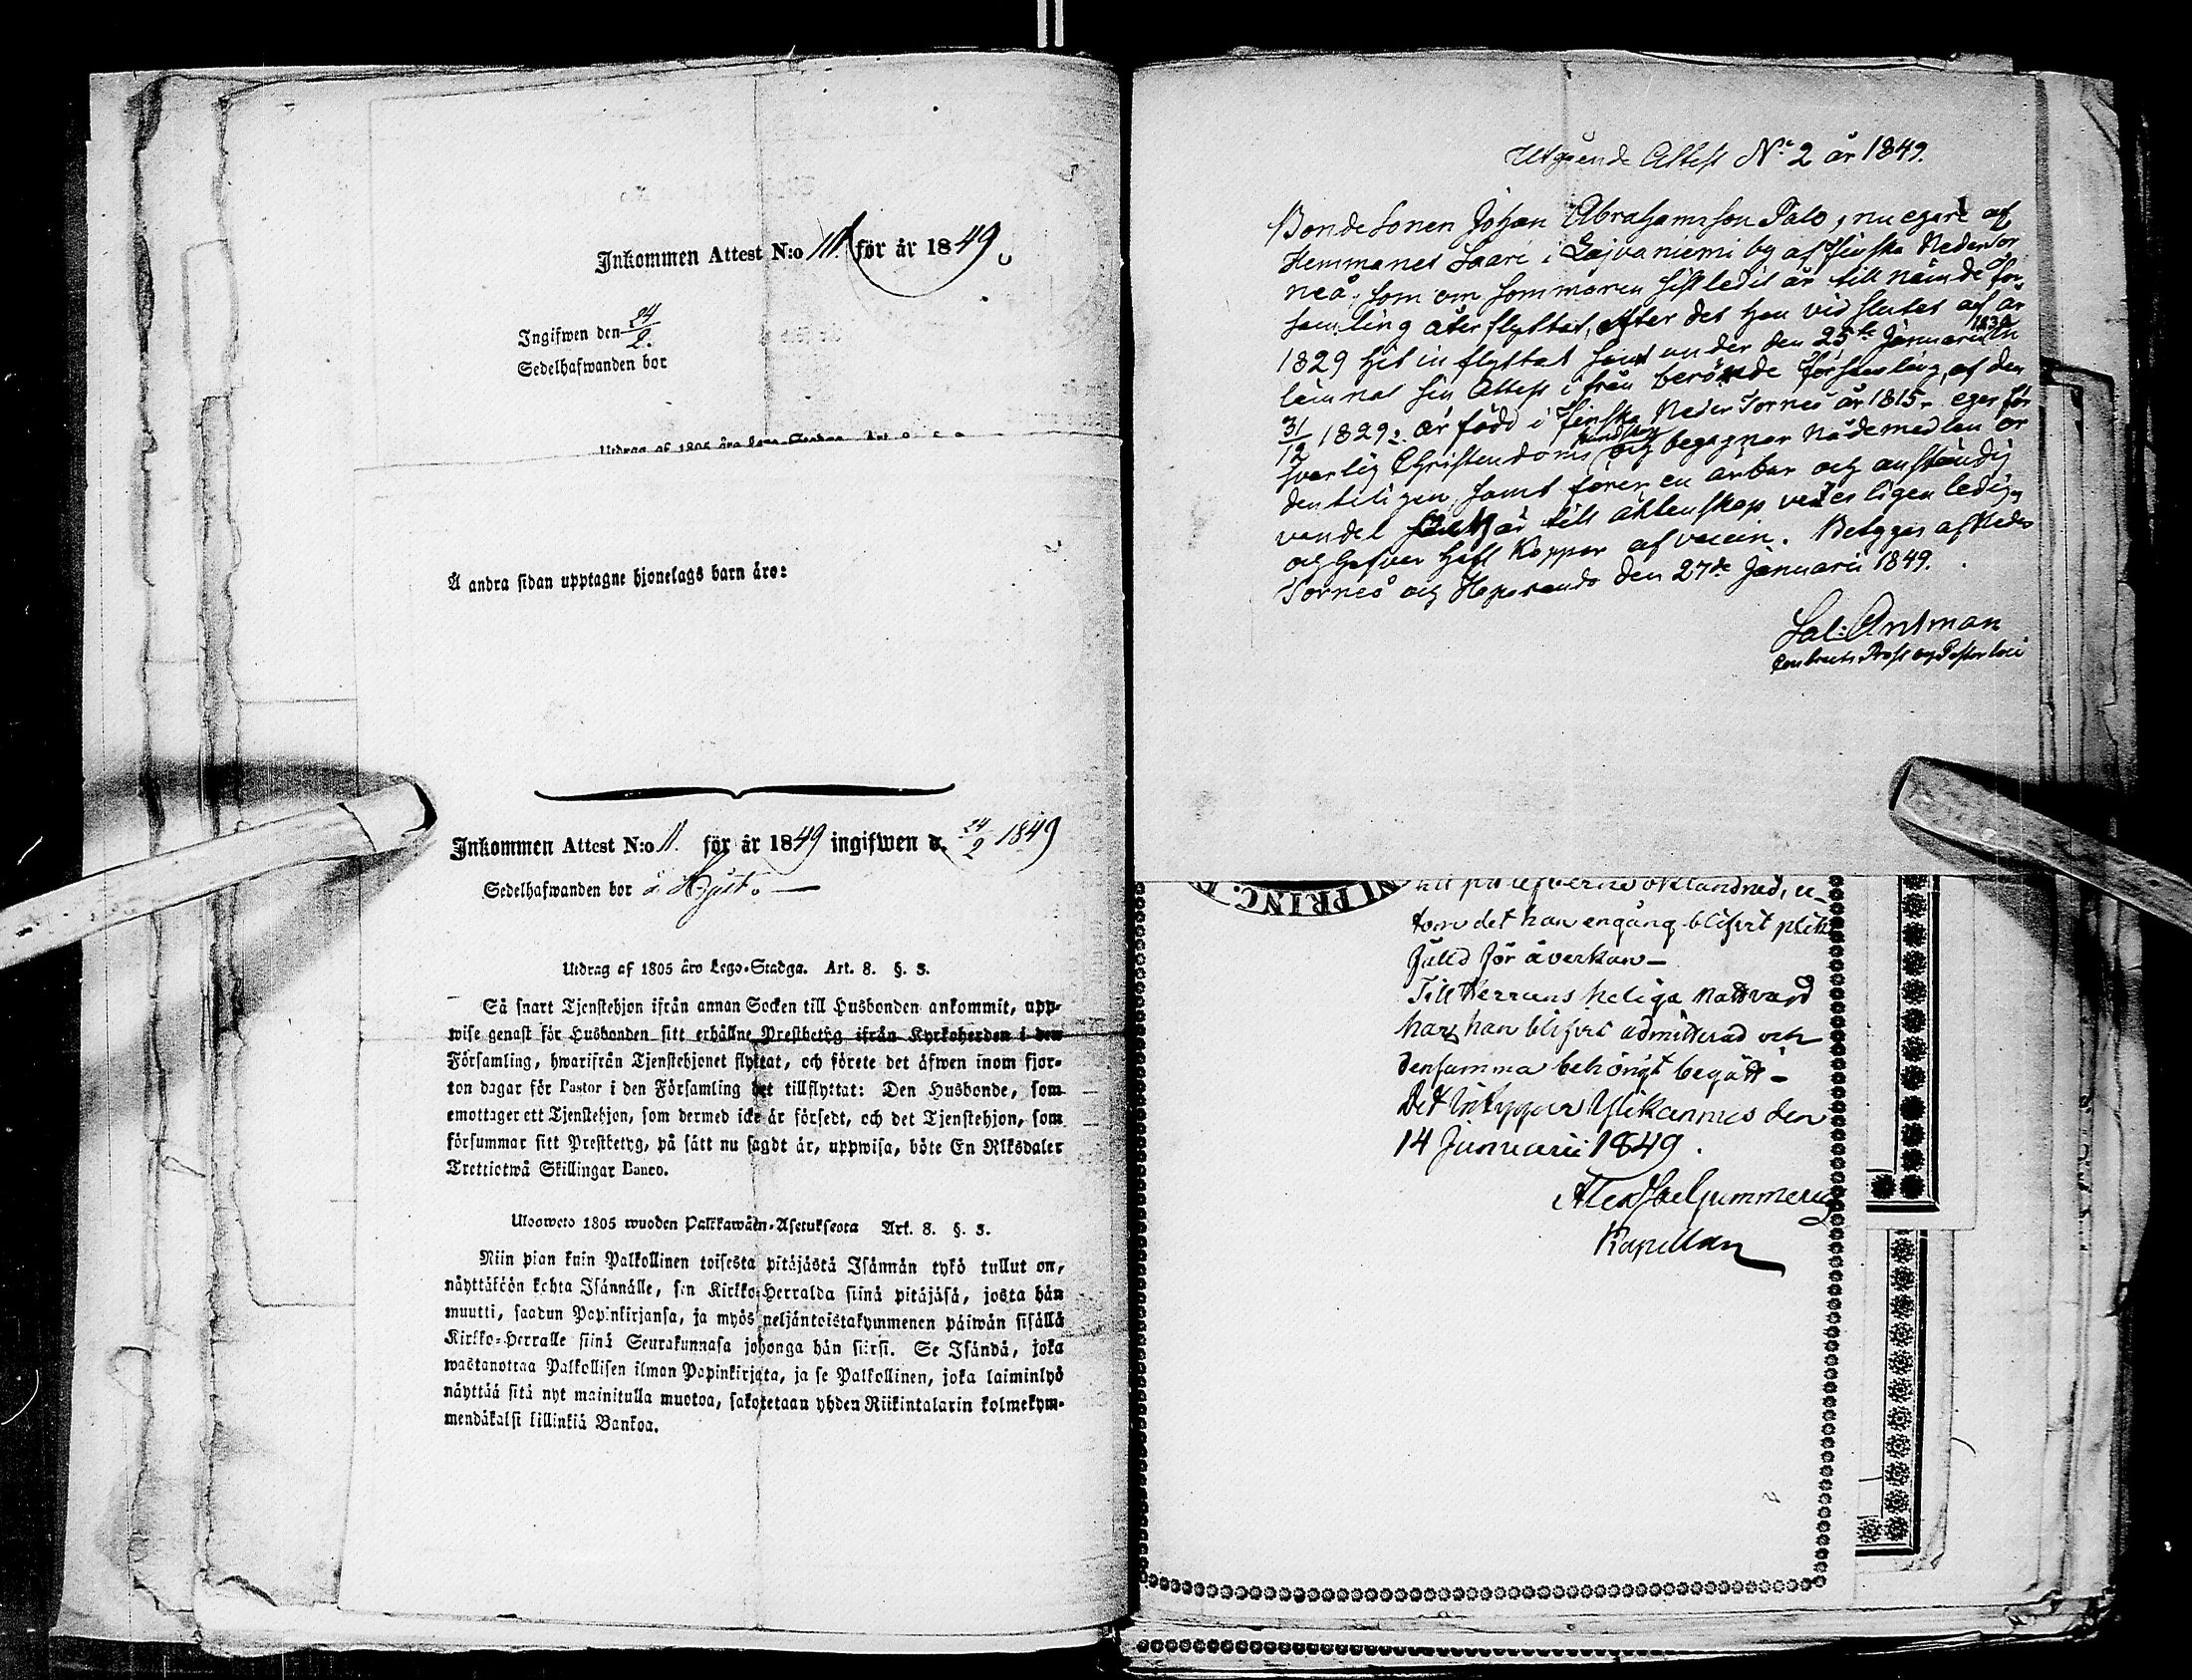 Inkommen Attest N:o 11. för år 1849.
Ingifwen den 24/2.
Sedelhafwanden bor
Utdrag af 1805 års Lego-Stadga. Art. 8. §.
Å andra sidan upptagne hjonelags barn äro:
Inkommen Attest N:o 11. för år 1849 ingifwen d. 24/2 1849
Sedelhafwanden bor å
Utdrag af 1805 års Lego-Stadga. Art. 8. §. 3.
Så snart Tjenstehjon ifrån annan Socken till Husbonden ankommit, upp-
wise genast för Husbonden sitt erhållne Prestbetyg ifrån Kyrkoherden i den
Församling, hwarifrån Tjenstehjonet flyttat, och förete det äfwen inom fjor-
ton dagar för Pastor i den Församling det tillflyttat: Den Husbonde, som
emottager ett Tjenstehjon, som dermed icke är försedt, och det Tjenstehjon, som
försummar sitt Prestbetyg, på sätt nu sagdt är, uppwisa, böte En Riksdaler
Trettiotwå Skillingar Banco.
Ulosweto 1805 wuoden Palkkawäen-Asetuksesta Art. 8. §. 3.
Niin pian kuin Palkollinen toisesta pitäjästä Isännän tykö tullut on,
näyttäköön kohta Isännälle, sen Kirkko-Herralda siinä pitäjäsä, josta hän
muutti, saadun Papinkirjansa, ja myös neljäntoistakymmenen päiwän sisällä
Kirkko-Herralle siinä Seurakunnasa johonga hän siirsi. Se Isändä, joka
wastanottaa Palkollisen ilman Papinkirjata, ja se Palkollinen, joka laiminlyö
näyttää sitä nyt mainitulla muotoa, sakotetaan yhden Riikintalarin kolmekym-
mendäkaksi killinkiä Bankoa.
Utgående Attest N:o 2 år 1849.
Bondesonen Johan Abrahamsson Palo, nu egare af
Hemmanet Saari i Laivaniemi by af Finska Neder Tor
neå, som om sommaren sistledit år till nämnde för-
samling återflyttat, efter det han vid slutet af år
1829 hit inflyttat samt under den 25te Januarii 1830
lämnat sin Attest ifrån berörde församling, af den
31/12 1829: är född i Finska Neder Torneå år 1815. eger för
svarlig Christendoms kundskap och begagnar Nådemedlen or
dentligen, samt förer en ärbar och anständig
vandel är till äktenskap veterligen ledig,
och hafver haft Koppor af vaccin. Betygas af Neder
Torneå och Haparanda den 27de Januarii 1849.
Sal: Antman
Contracts Prost och Pastor loci
PRINC.
tom det han engång blifvit plikt
fälld för åverkan –
Till Herrans heliga Nattvard
har han blifvit admitterad och
densamma behörigt begått –
Det intygar Ylikannus den
14 Januarii 1849.
Alex Joel Gummerus
Kapellan